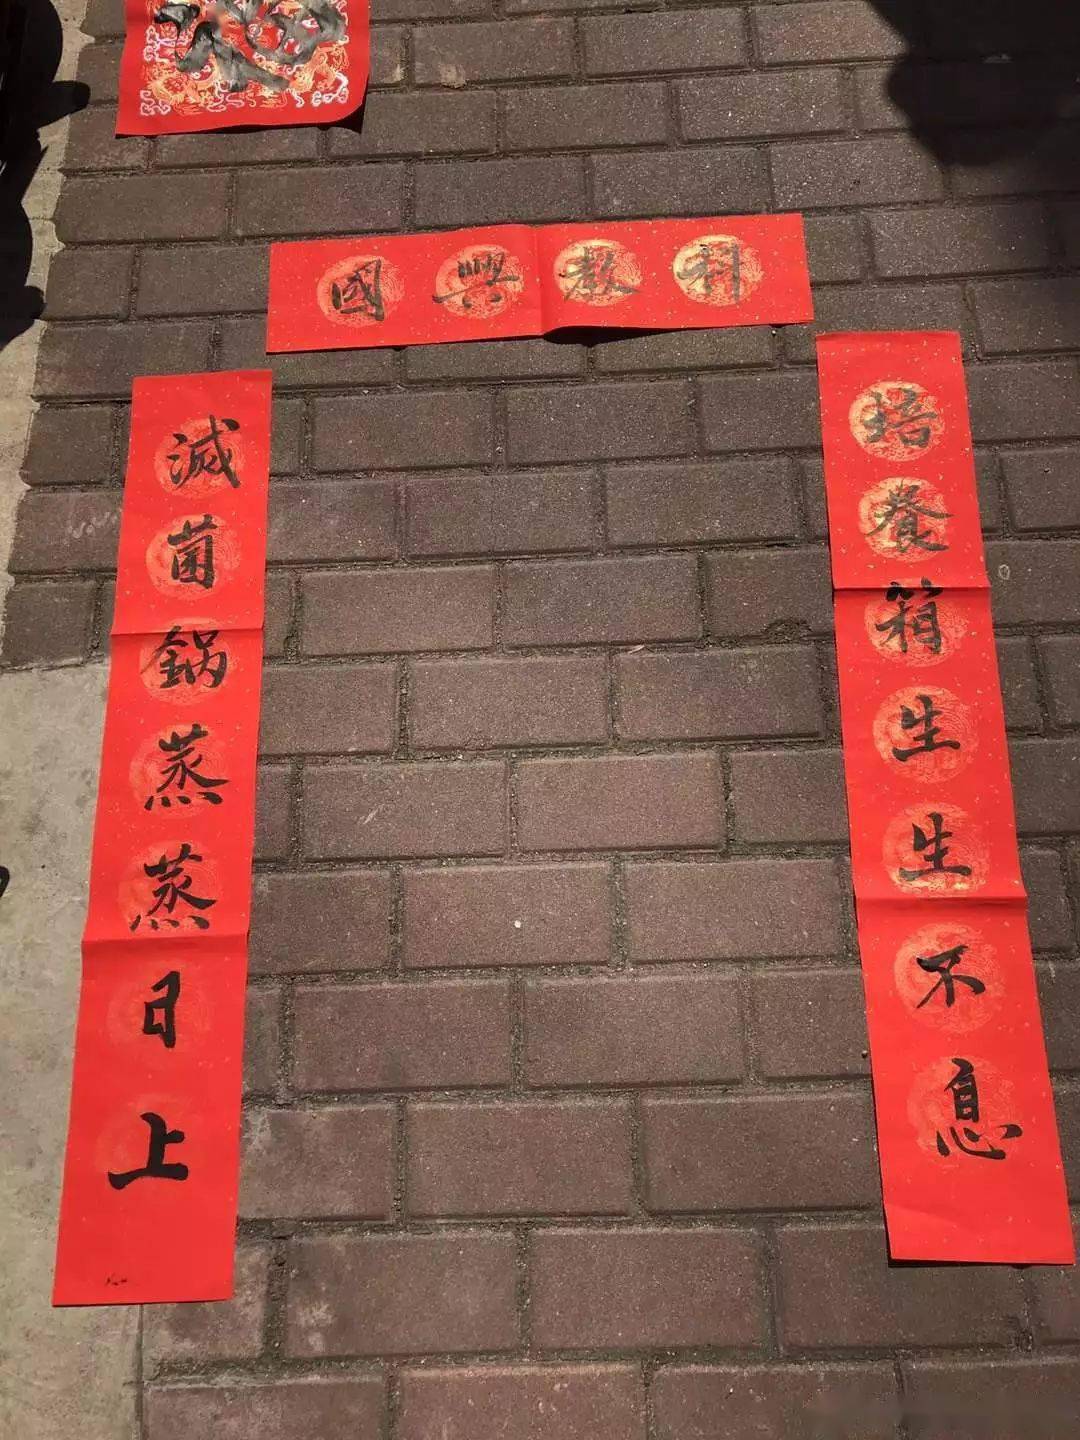 科教興國
培養箱生生不息
滅菌鍋蒸蒸日上